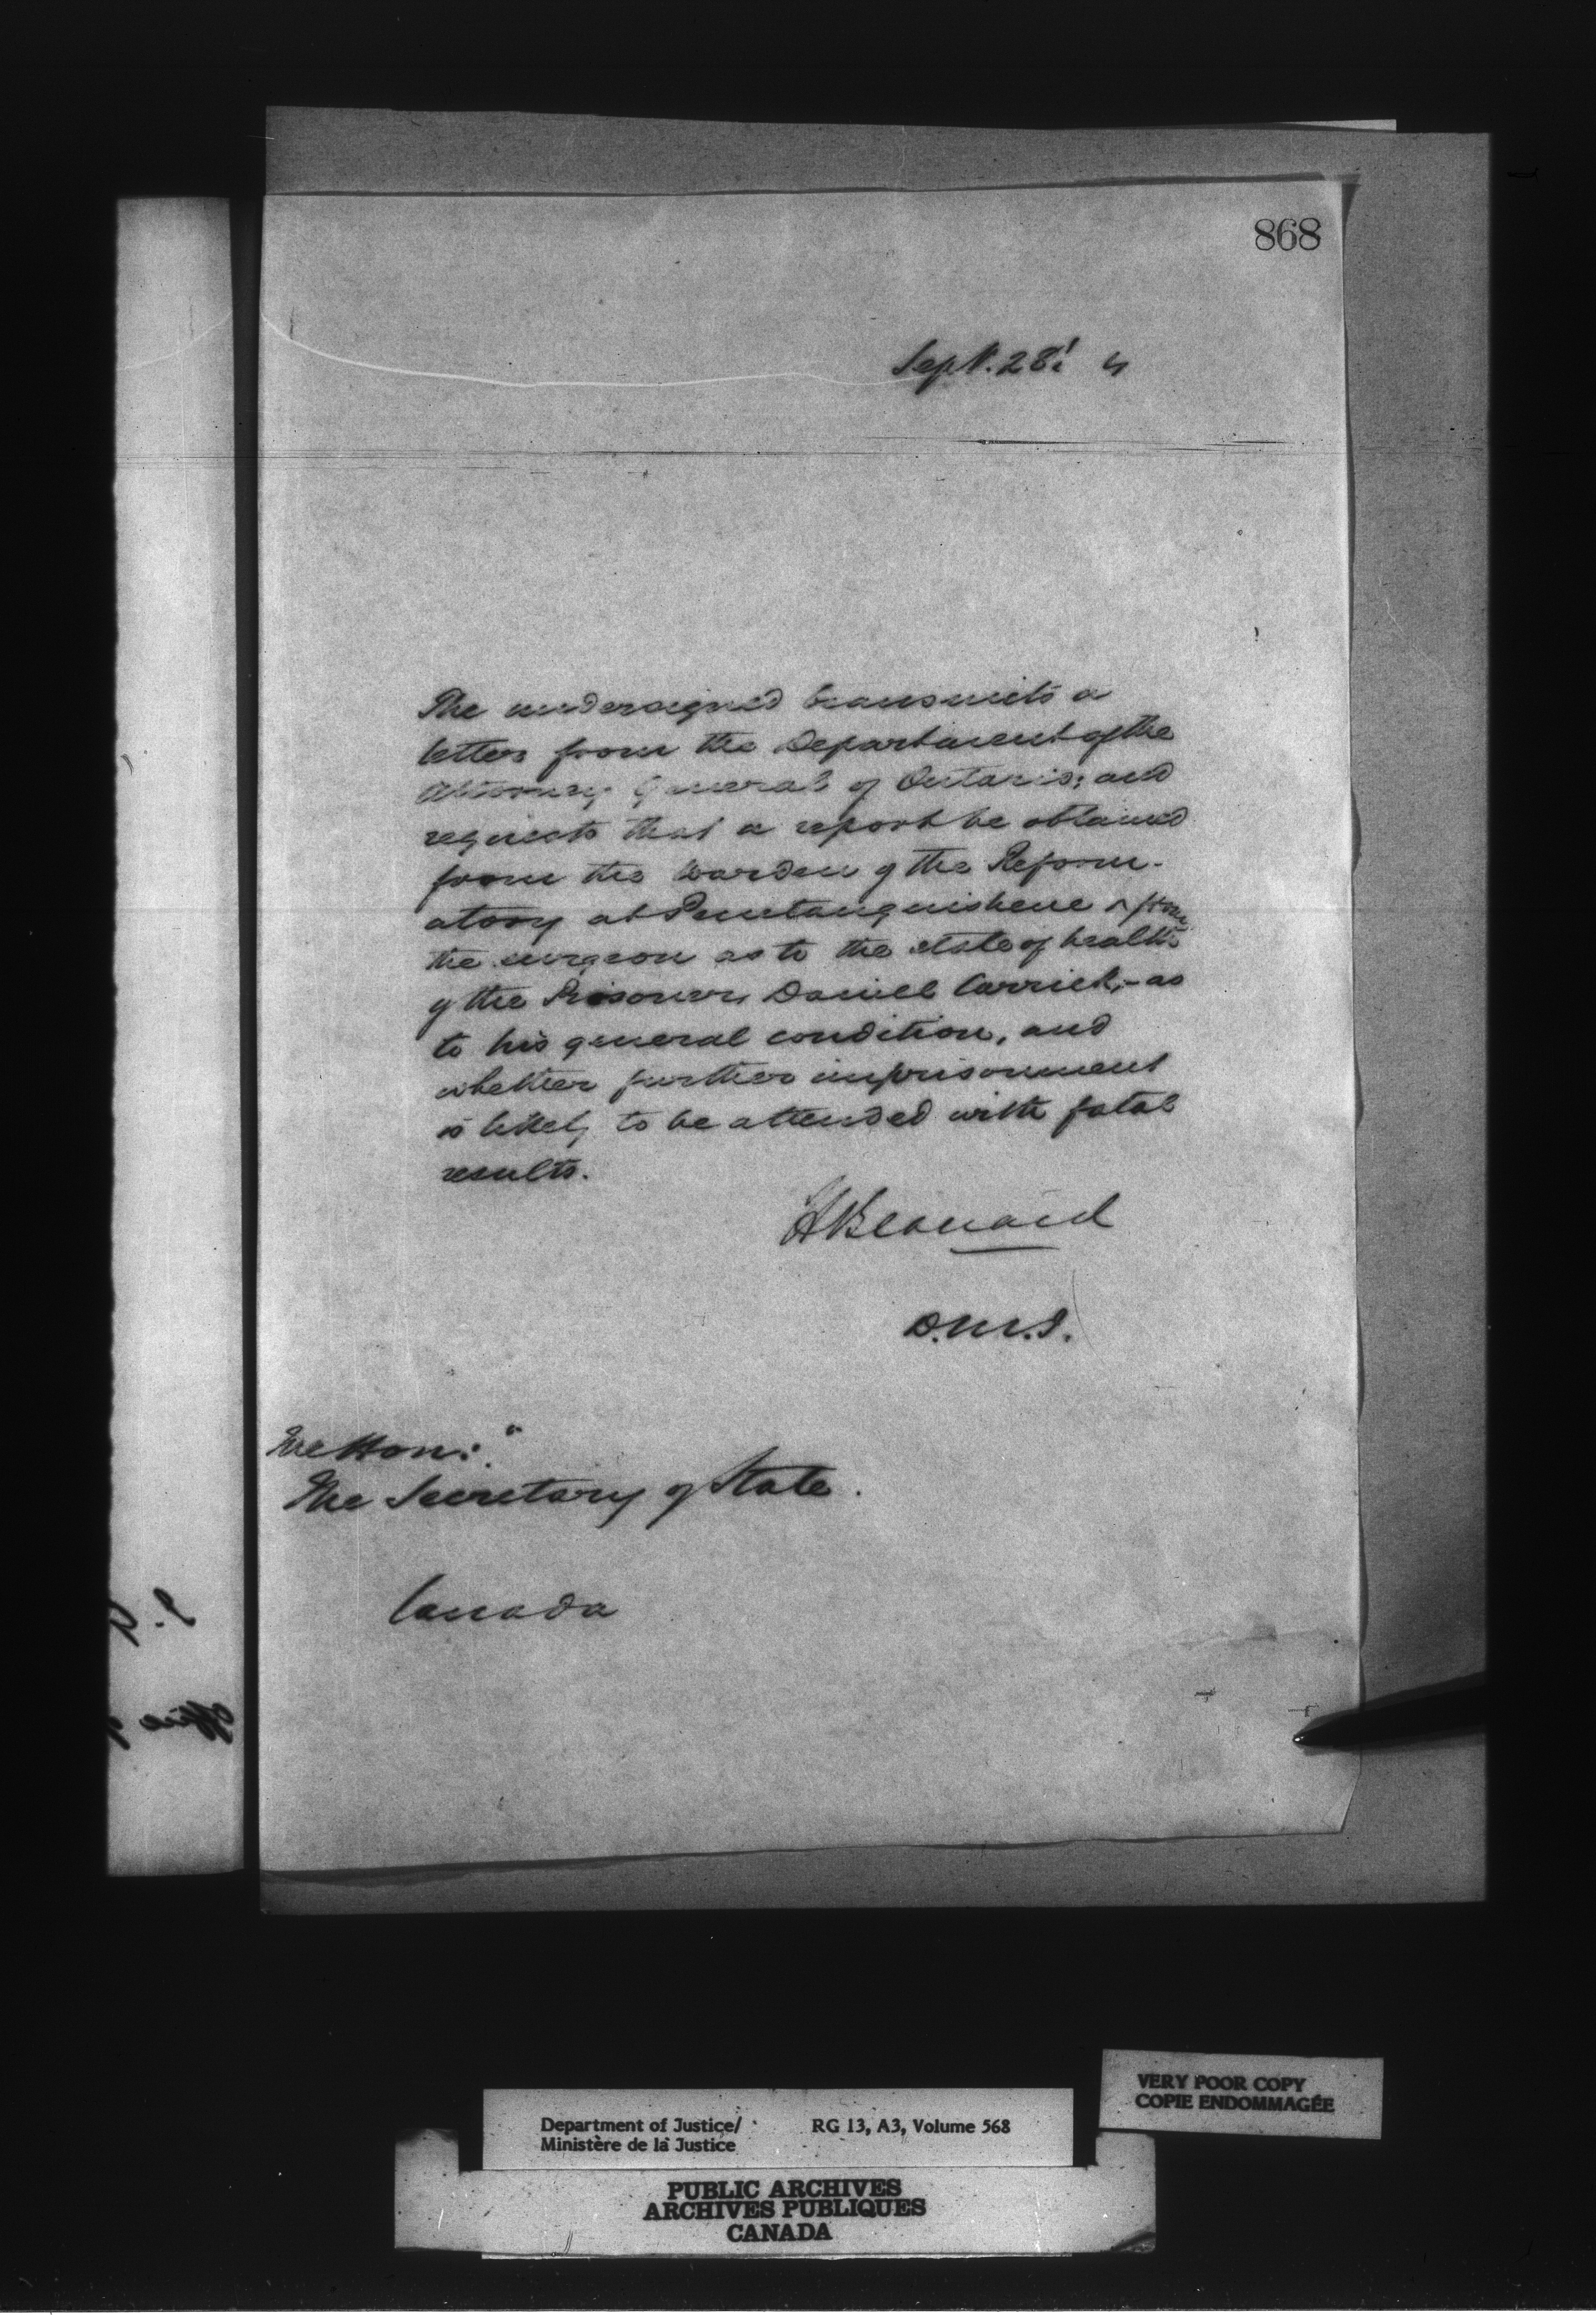 868
Sept. 28th 4
The undersigned transmits a
letter from the Department of the
Attorney General of Ontario; and
requests that a report be obtained
from the Warden of the Reform-
atory at Penetanguishene & from
the surgeon as to the state of health
of the Prisoner, Daniel Carrick, - as
to his general condition, and
whether further imprisonment
is likely to be attended with fatal
results.
H Bernard
D.M.J.
The Hon:
The Secretary of State.
Canada
office
VERY POOR COPY
COPIE ENDOMMAGÉE
Department of Justice/ RG 13, A3, Volume 568
Ministère de la Justice
PUBLIC ARCHIVES
ARCHIVES PUBLIQUES
CANADA